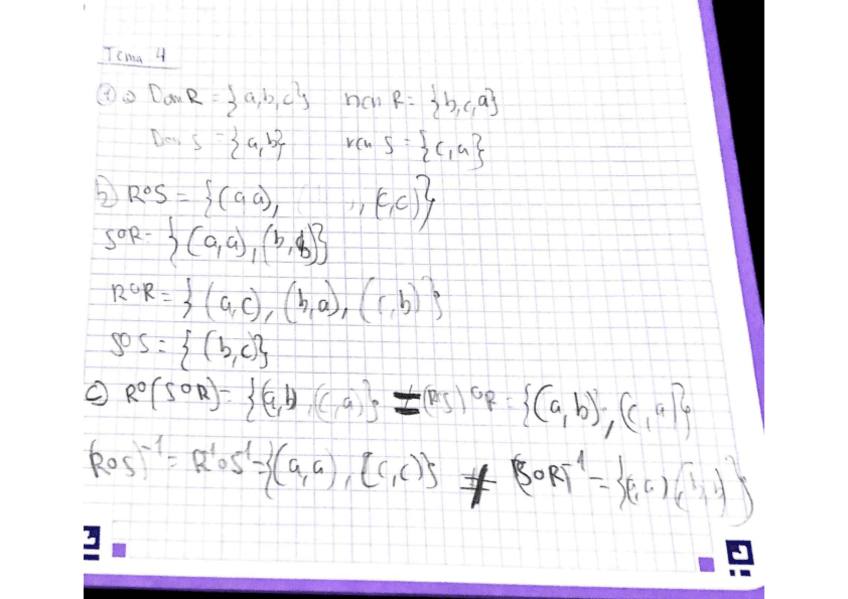 Tema 4
① a) Dom R = {a,b,c} ran R = {b,c,a}
Dom S = {a,b} ran S = {c,a}
b) R∘S = {(a,a), , (c,c)}
S∘R = {(a,a),(b,b)}
R∘R = {(a,c), (b,a), (c,b)}
S∘S = {(b,c)}
c) R∘(S∘R) = {(a,b), (c,a)} ≠ (R∘S)∘R = {(a,b), (c,a)}
(R∘S)⁻¹ = R⁻¹∘S⁻¹ = {(a,a), (c,c)} ≠ (S∘R)⁻¹ = {(a,a) (b,b)}